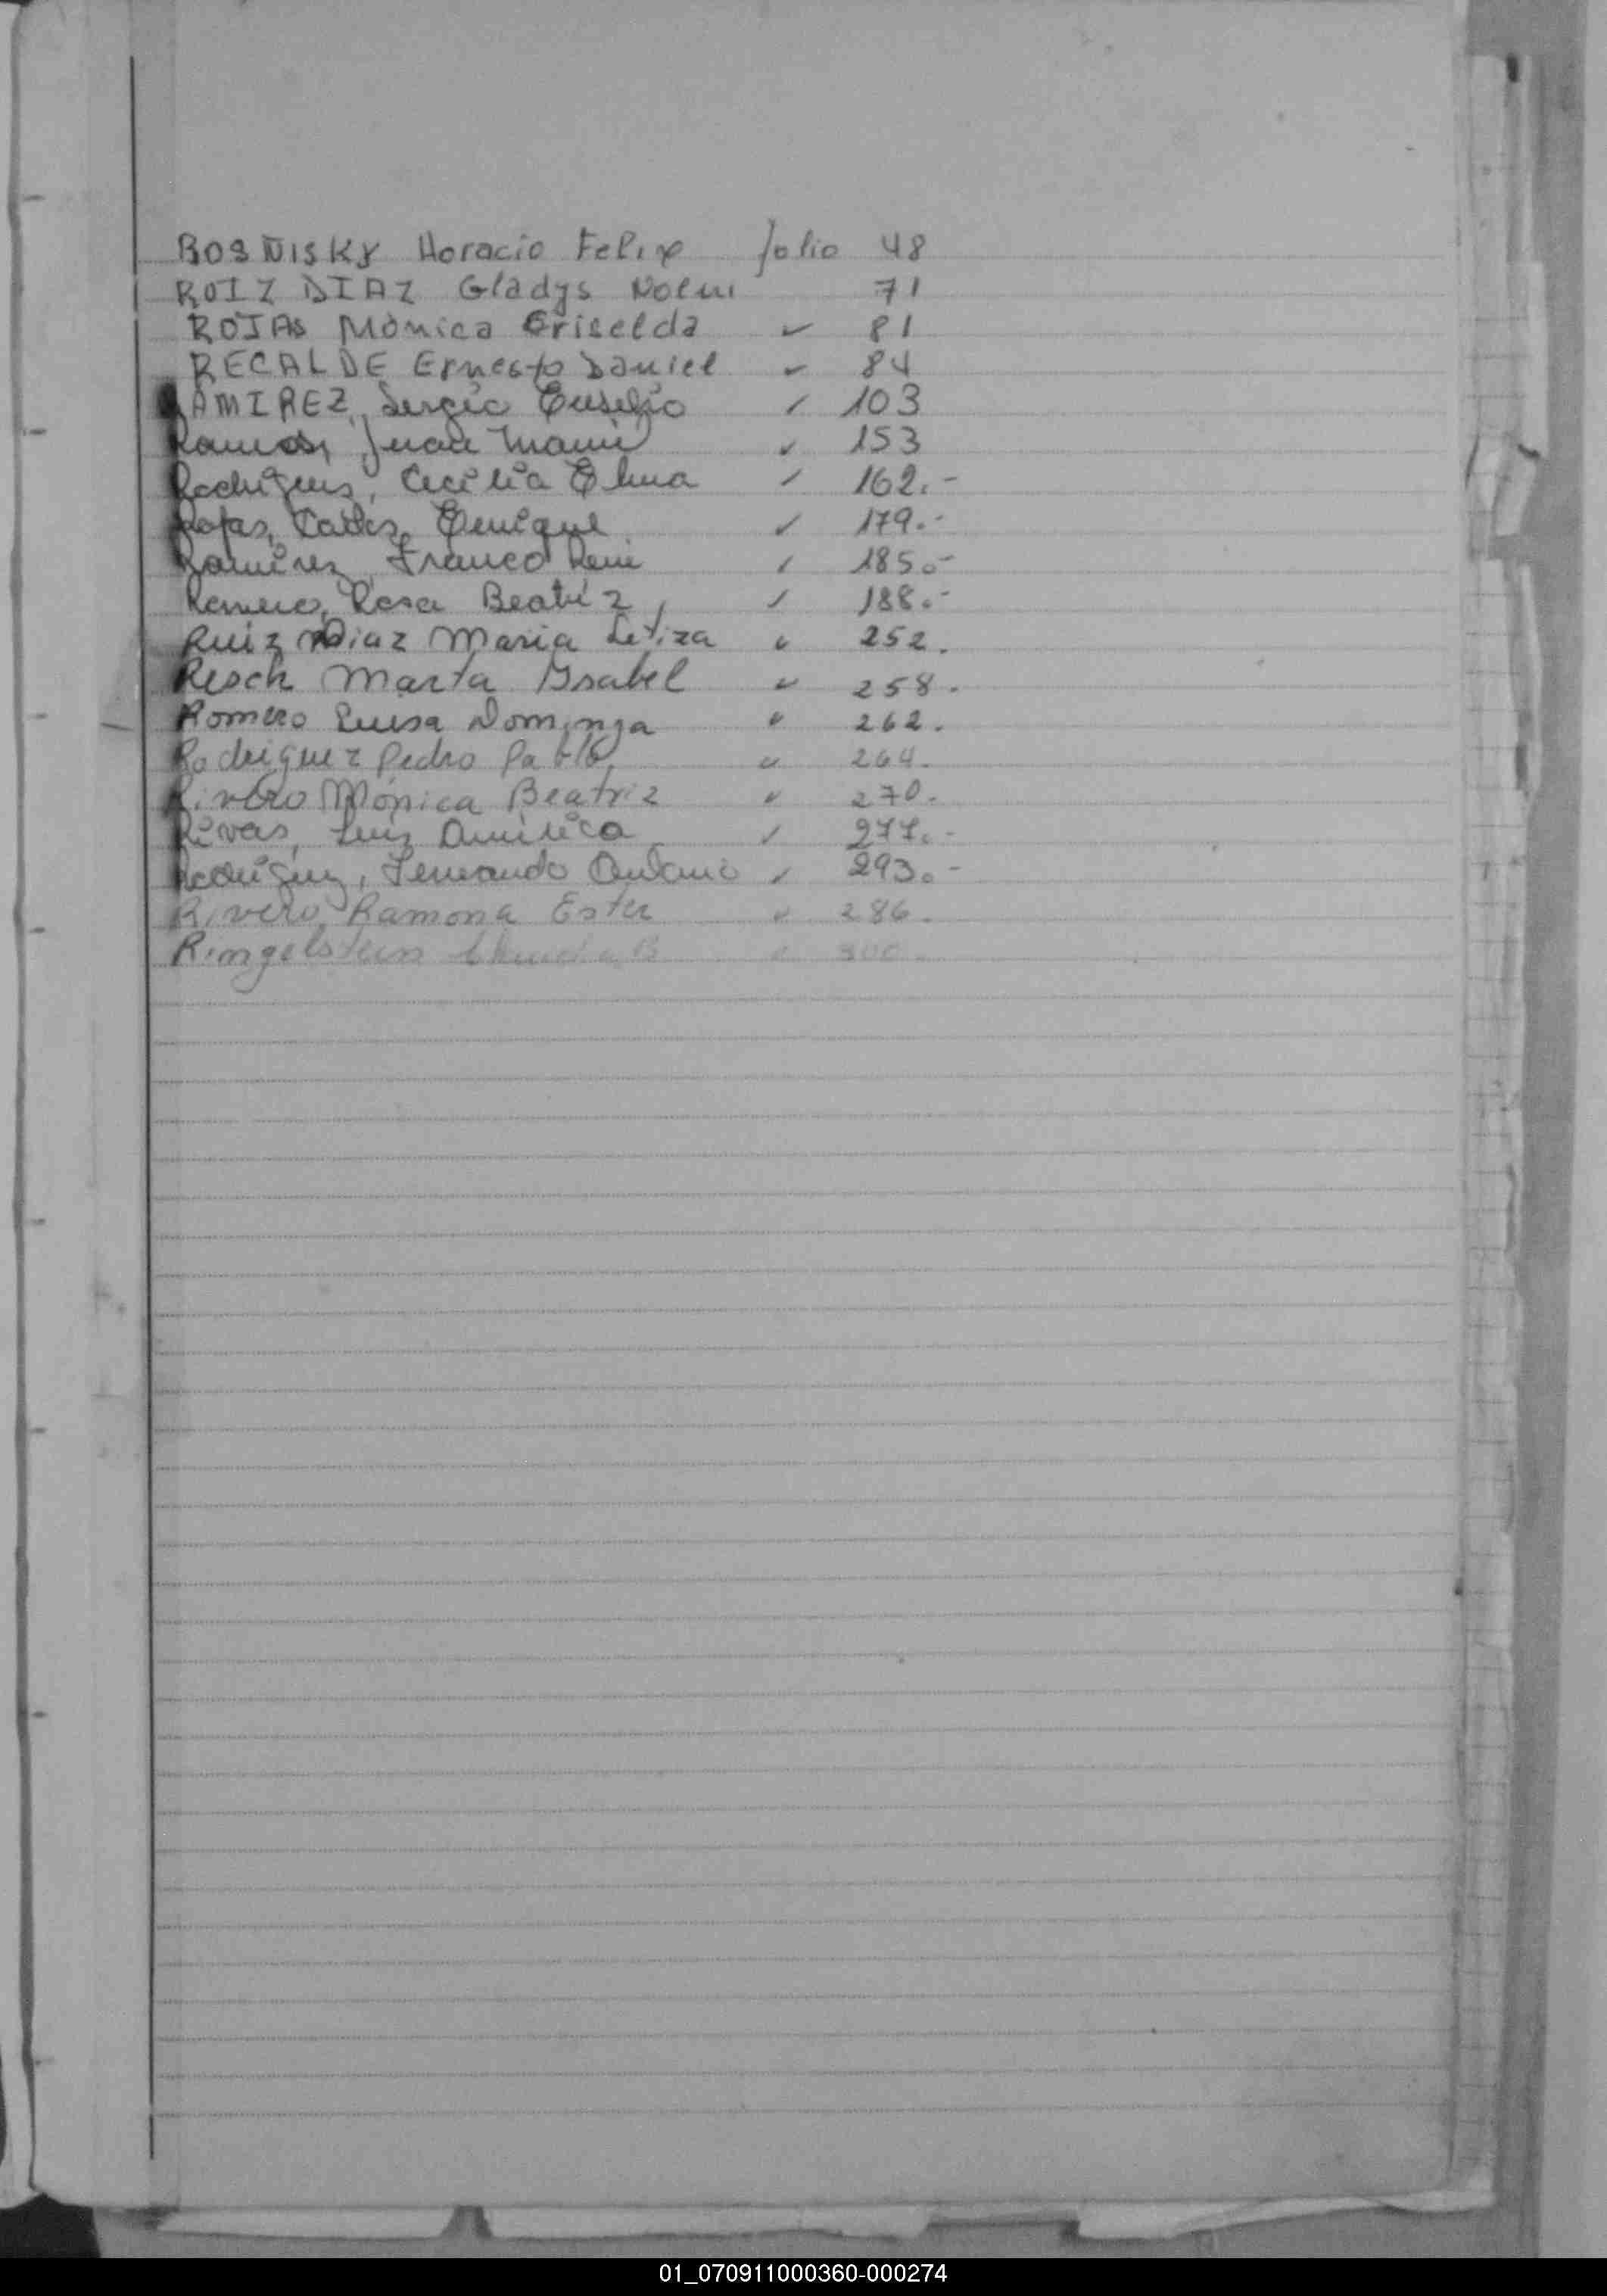 ROSÑISKY Horacio Felix folio 48
ROIZ DIAZ Gladys Noemi 71
ROJAS Mònica Griselda " 81
RECALDE Ernesto Daniel " 84
RAMIREZ, Sergio Eusebio " 103
Ramos, Juan " 153
Rodriguez, Cecilia Elma " 162.-
Rojas, Carlos Enrique " 179.-
Ramirez, Franco Rene " 185.-
Romero, Rosa Beatriz, " 188.-
Ruiz Diaz Maria Letiza " 252.
Resch Marta Ysabel " 258.
Romero Luisa Dominga " 262.
Rodriguez Pedro Pablo. " 264.
Rivero Mónica Beatriz " 270.
Rivas, Luiz America " 277.-
Rodriguez, Fernando Antonio " 293.-
Rivero, Ramona Ester " 286.
Ringelstein Claudia B " 300.
01_070911000360-000274